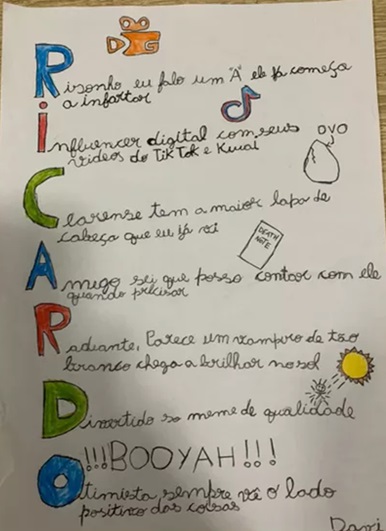 DG
Risonho eu falo um "A" ele já começa
a infartar
Influencer digital com seus
videos do Tik Tok e Kwai
OVO
Cearense tem a maior lapa de
cabeça que eu já vi
DEATH
NOTE
Amigo sei que posso contar com ele
quando precisar
Radiante, Parece um vampiro de tão
branco chega a brilhar no sol
Divertido so meme de qualidade
!!!BOOYAH!!!
Otimista, sempre vê o lado
positivo das coisas
Davi